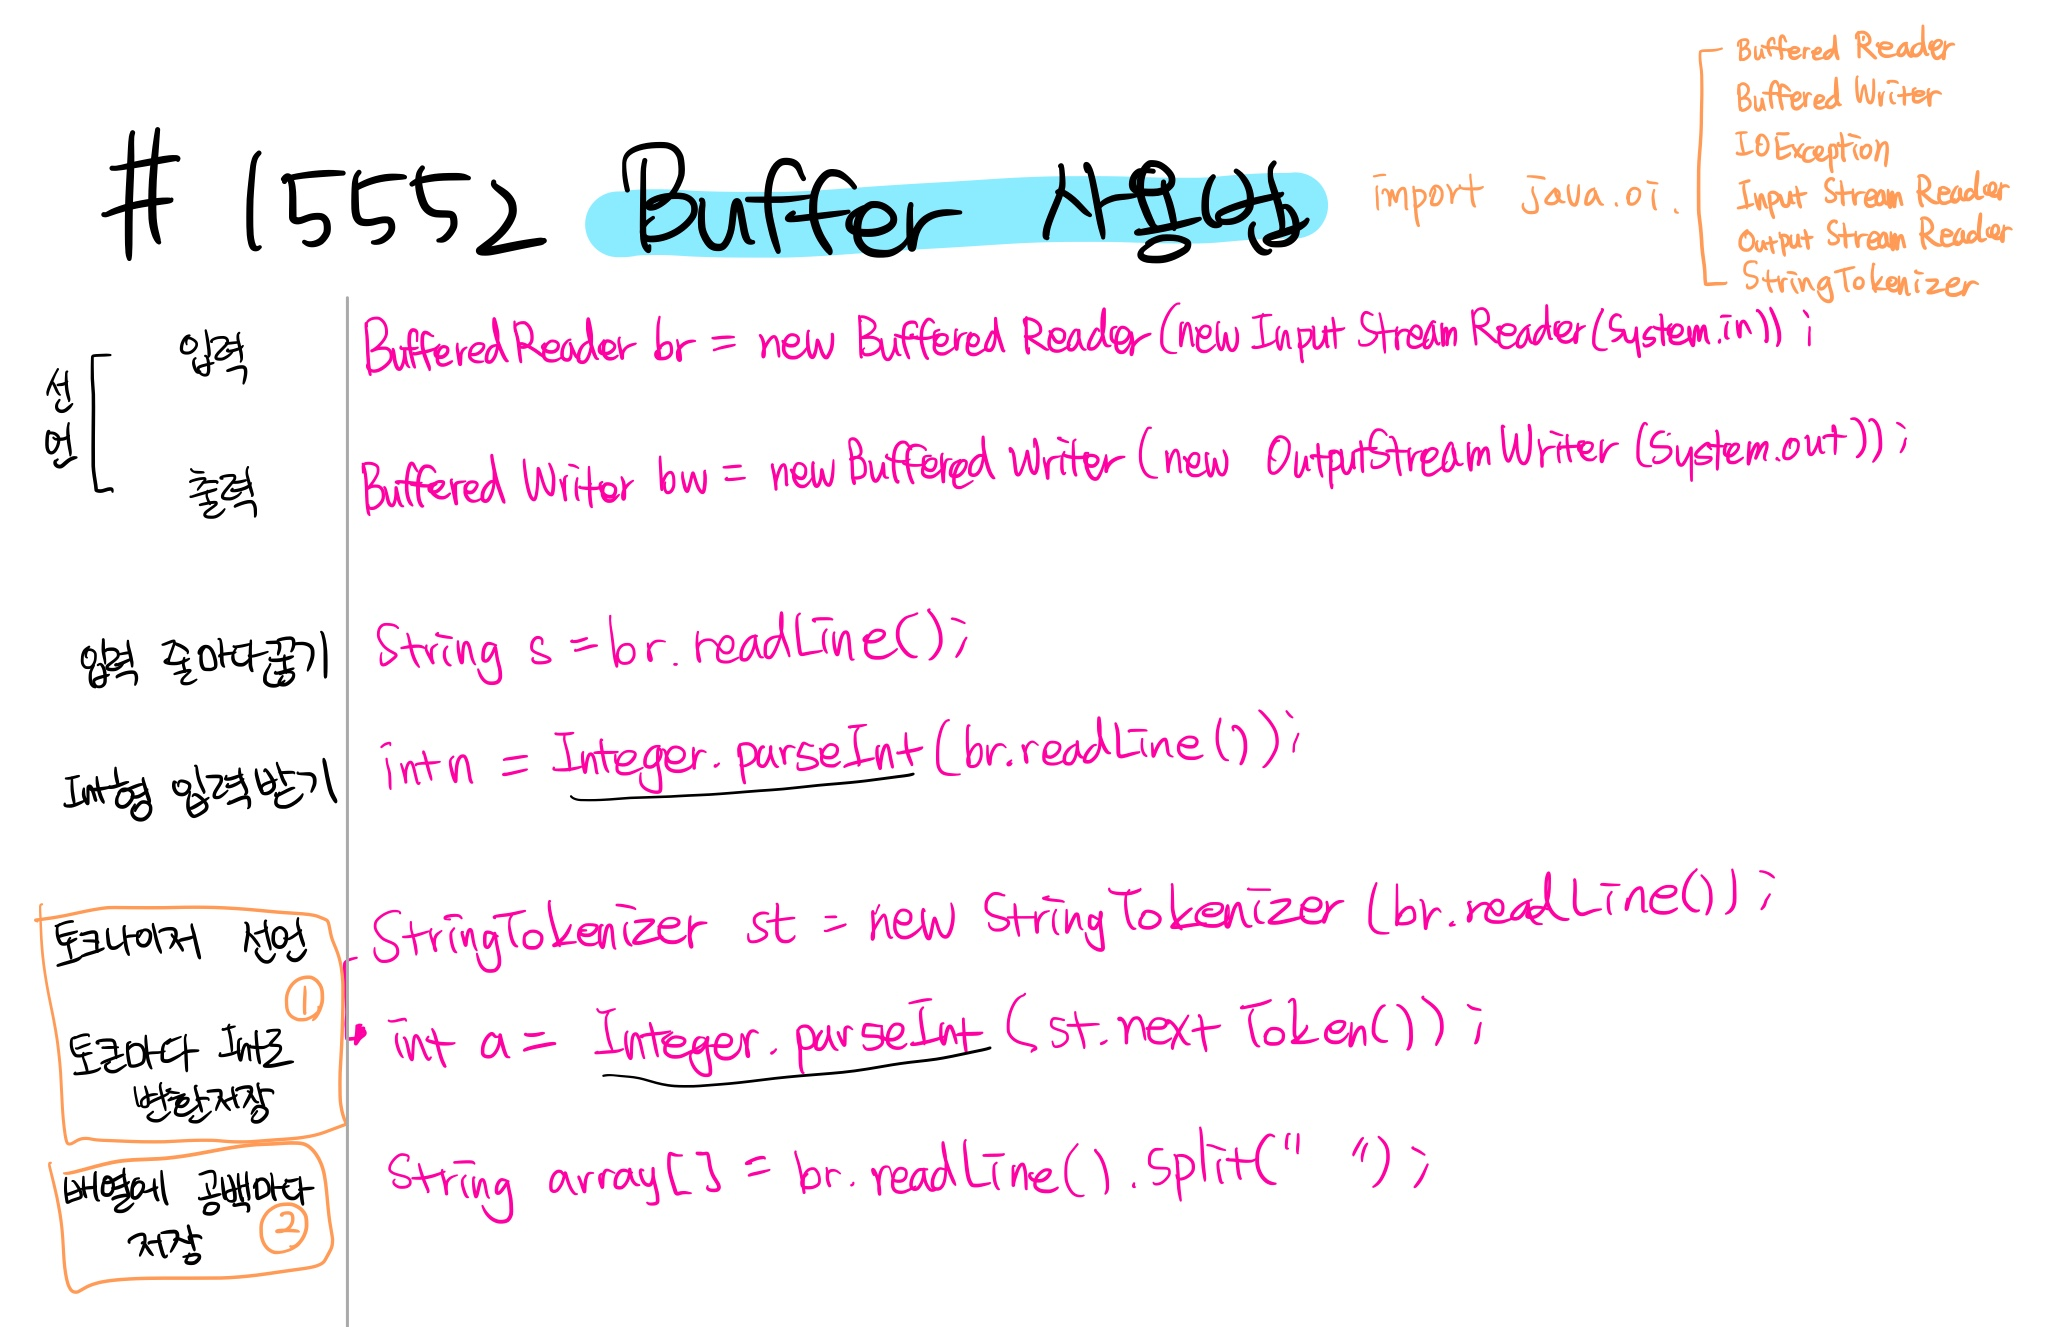 # 15552 Buffer 사용법
import java.oi.
Buffered Reader
Buffered Writer
IOException
Input Stream Reader
Output Stream Reader
StringTokenizer
선언
입력
BufferedReader br = new Buffered Reader(new Input Stream Reader(System.in));
출력
Buffered Writer bw = new Buffered Writer (new OutputStream Writer (System.out));
입력 줄마다끊기
String s = br.readLine();
Int형 입력받기
int n = Integer.parseInt(br.readLine());
토크나이저 선언
StringTokenizer st = new StringTokenizer (br.readLine());
①
토큰마다 Int로
변환저장
int a = Integer.parseInt (st.next Token());
배열에 공백마다
저장
②
String array[] = br.readLine().split(" ");